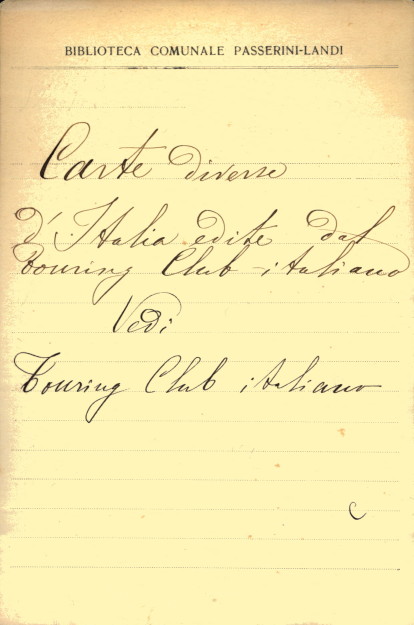 BIBLIOTECA COMUNALE PASSERINI-LANDI
Carte diverse
d'Italia edite dal
Touring Club italiano
Vedi
Touring Club italiano
C